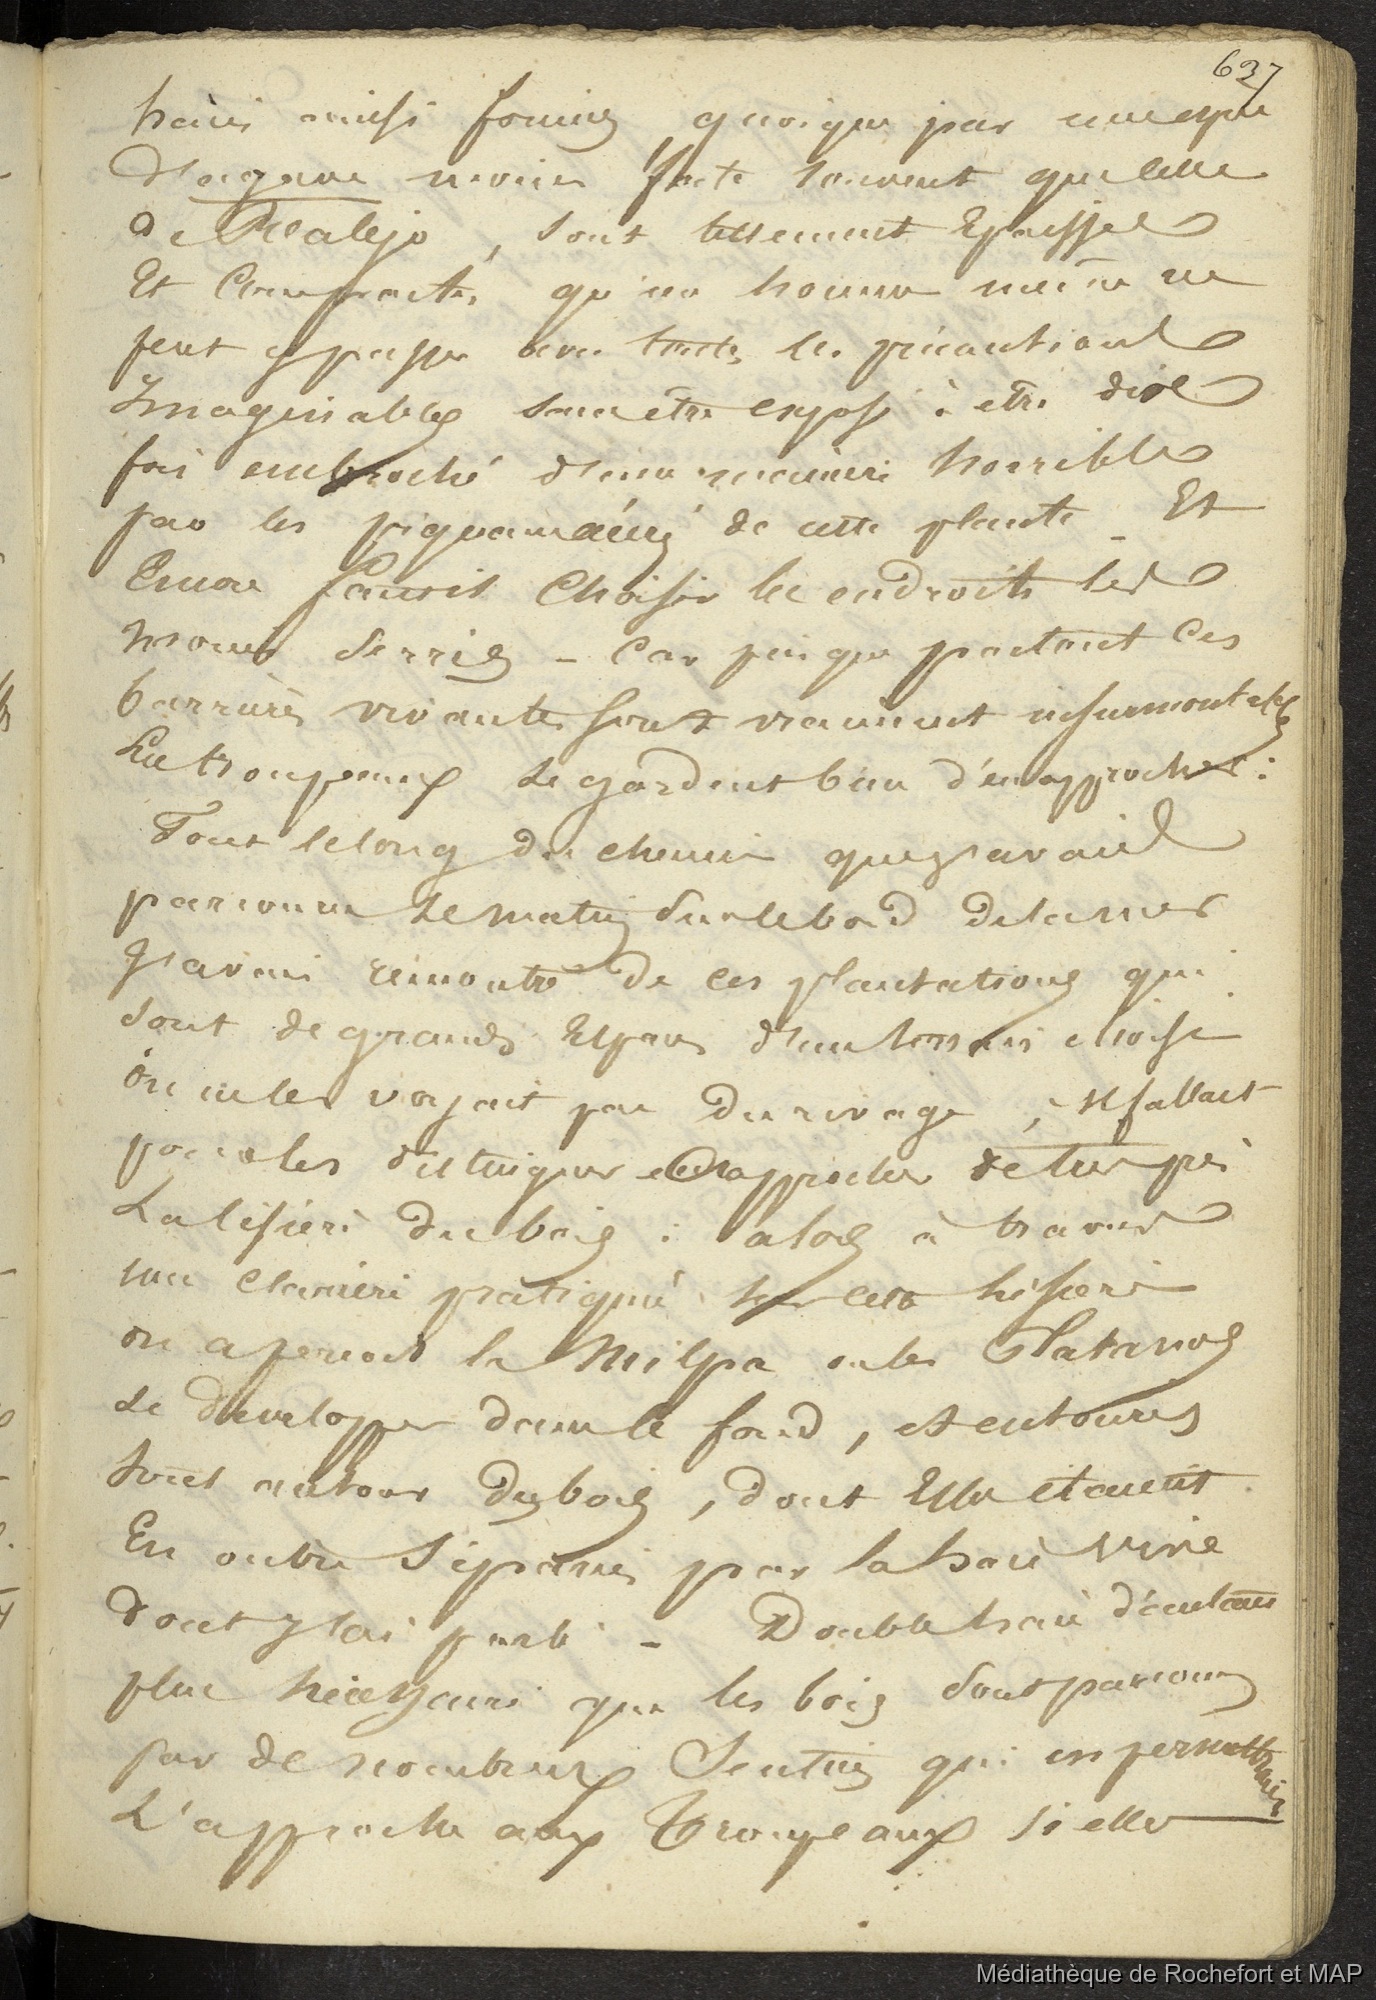 637
haies ainsi formées quoique par une espèce
d'agave moins forte souvent que celle
de Realejo, sont tellement Epaisses
Et Compactes qu'un homme même ne
peut y passer avec toutes les précautions
Imaginables sans être exposé à être dix
fois embroché d'une manière horrible
par les piquants de cette plante _ Et
Encore faut il Choisir les endroits les
moins serrés _ Car puisque partout ces
barrières vivantes sont vraiment insurmontables
Les troupeaux se gardent bien d'en approcher :
Tout le long du chemin que j'avais
parcouru le matin sur le bord de la mer
J'avais rencontré de ces plantations qui
sont de grands Espaces d'un terrain choisi
on ne les voyait pas du rivage ; il fallait
pour les distinguer approcher de très près
La lisière du bois : alors à travers
une clairière pratiquée sur cette lisière
on apercevoit la Milpa ou les Platanos
se développer dans le fond, et entourés
tout autour du bois, dont Elles étaient
En outre séparées par la haie vive
dont J'ai parlé _ Double haie d'autant
plus nécessaire que les bois sont parcourus
par de nombreux Sentiers qui en permettraient
L'approche aux Troupeaux si elles
Médiathèque de Rochefort et MAP